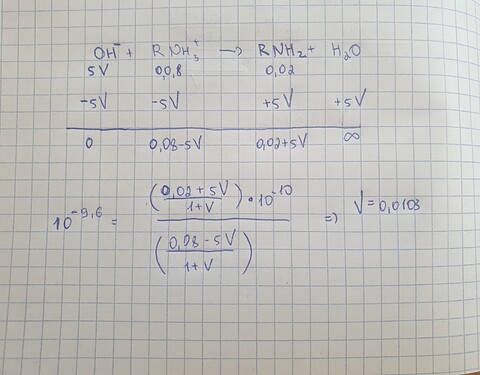 OH⁻ + RNH₃⁺ → RNH₂ + H₂O
5V 0,0,8 0,02
-5V -5V +5V +5V
0 0,08-5V 0,02+5V ∞
10^-9,6 = ((0,02+5V)/(1+V)) • 10^-10 / ((0,08-5V)/(1+V)) => V=0,0103